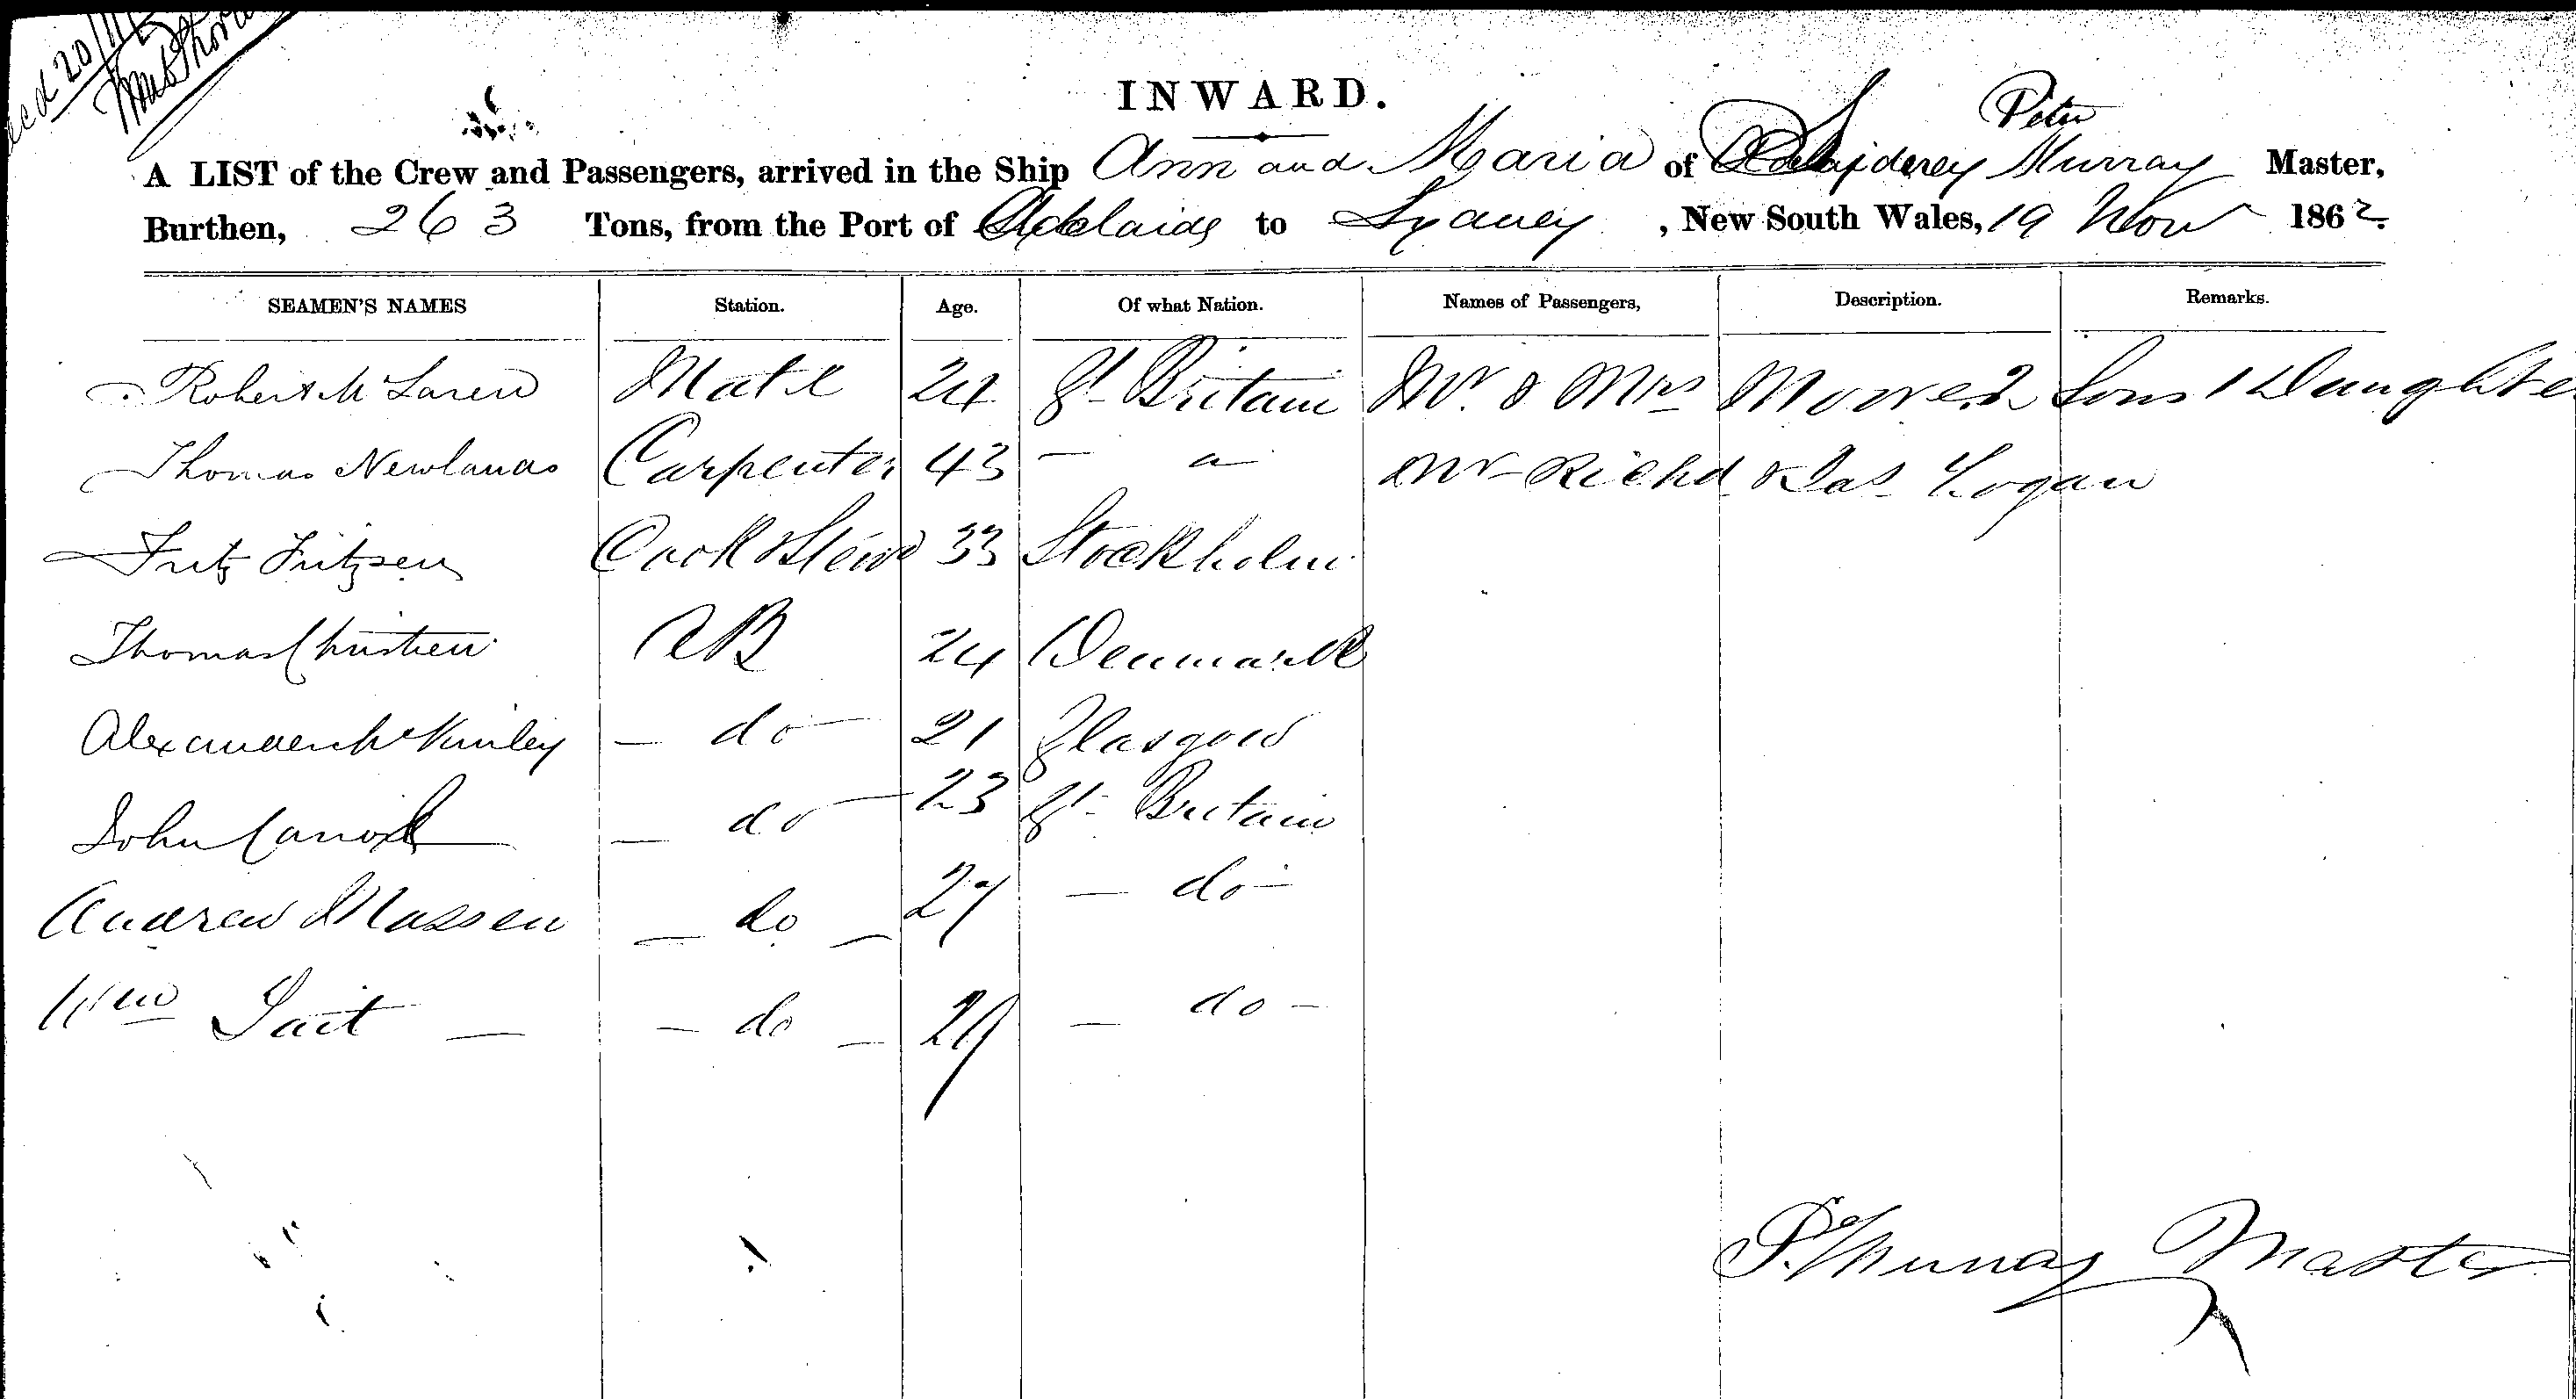 20/11/
INWARD.
Peter
A LIST of the Crew and Passengers, arrived in the Ship Ann and Maria of Sydney Murray Master,
Burthen, 263 Tons, from the Port of Adelaide to Sydney, New South Wales, 19 Nov 1862.
SEAMEN'S NAMES Station. Age. Of what Nation. Names of Passengers, Description. Remarks.
Robert McLaren Mate 24 Gt Britain Mr. & Mrs Moore 2 Sons 1 Daughte
Thomas Newlands Carpenter 43 — " Mr Richd & Jas Logan
Fritz Fritzen Cook & Stewd 33 Stockholm
Thomas Christien AB 24 Denmark
Alexander McKinley — do — 21 Glasgow
John — do — 23 Gt Britain
Andrew Massen — do — 27 — do —
Wm Tait — — do — 29 — do —
P. Murray Master